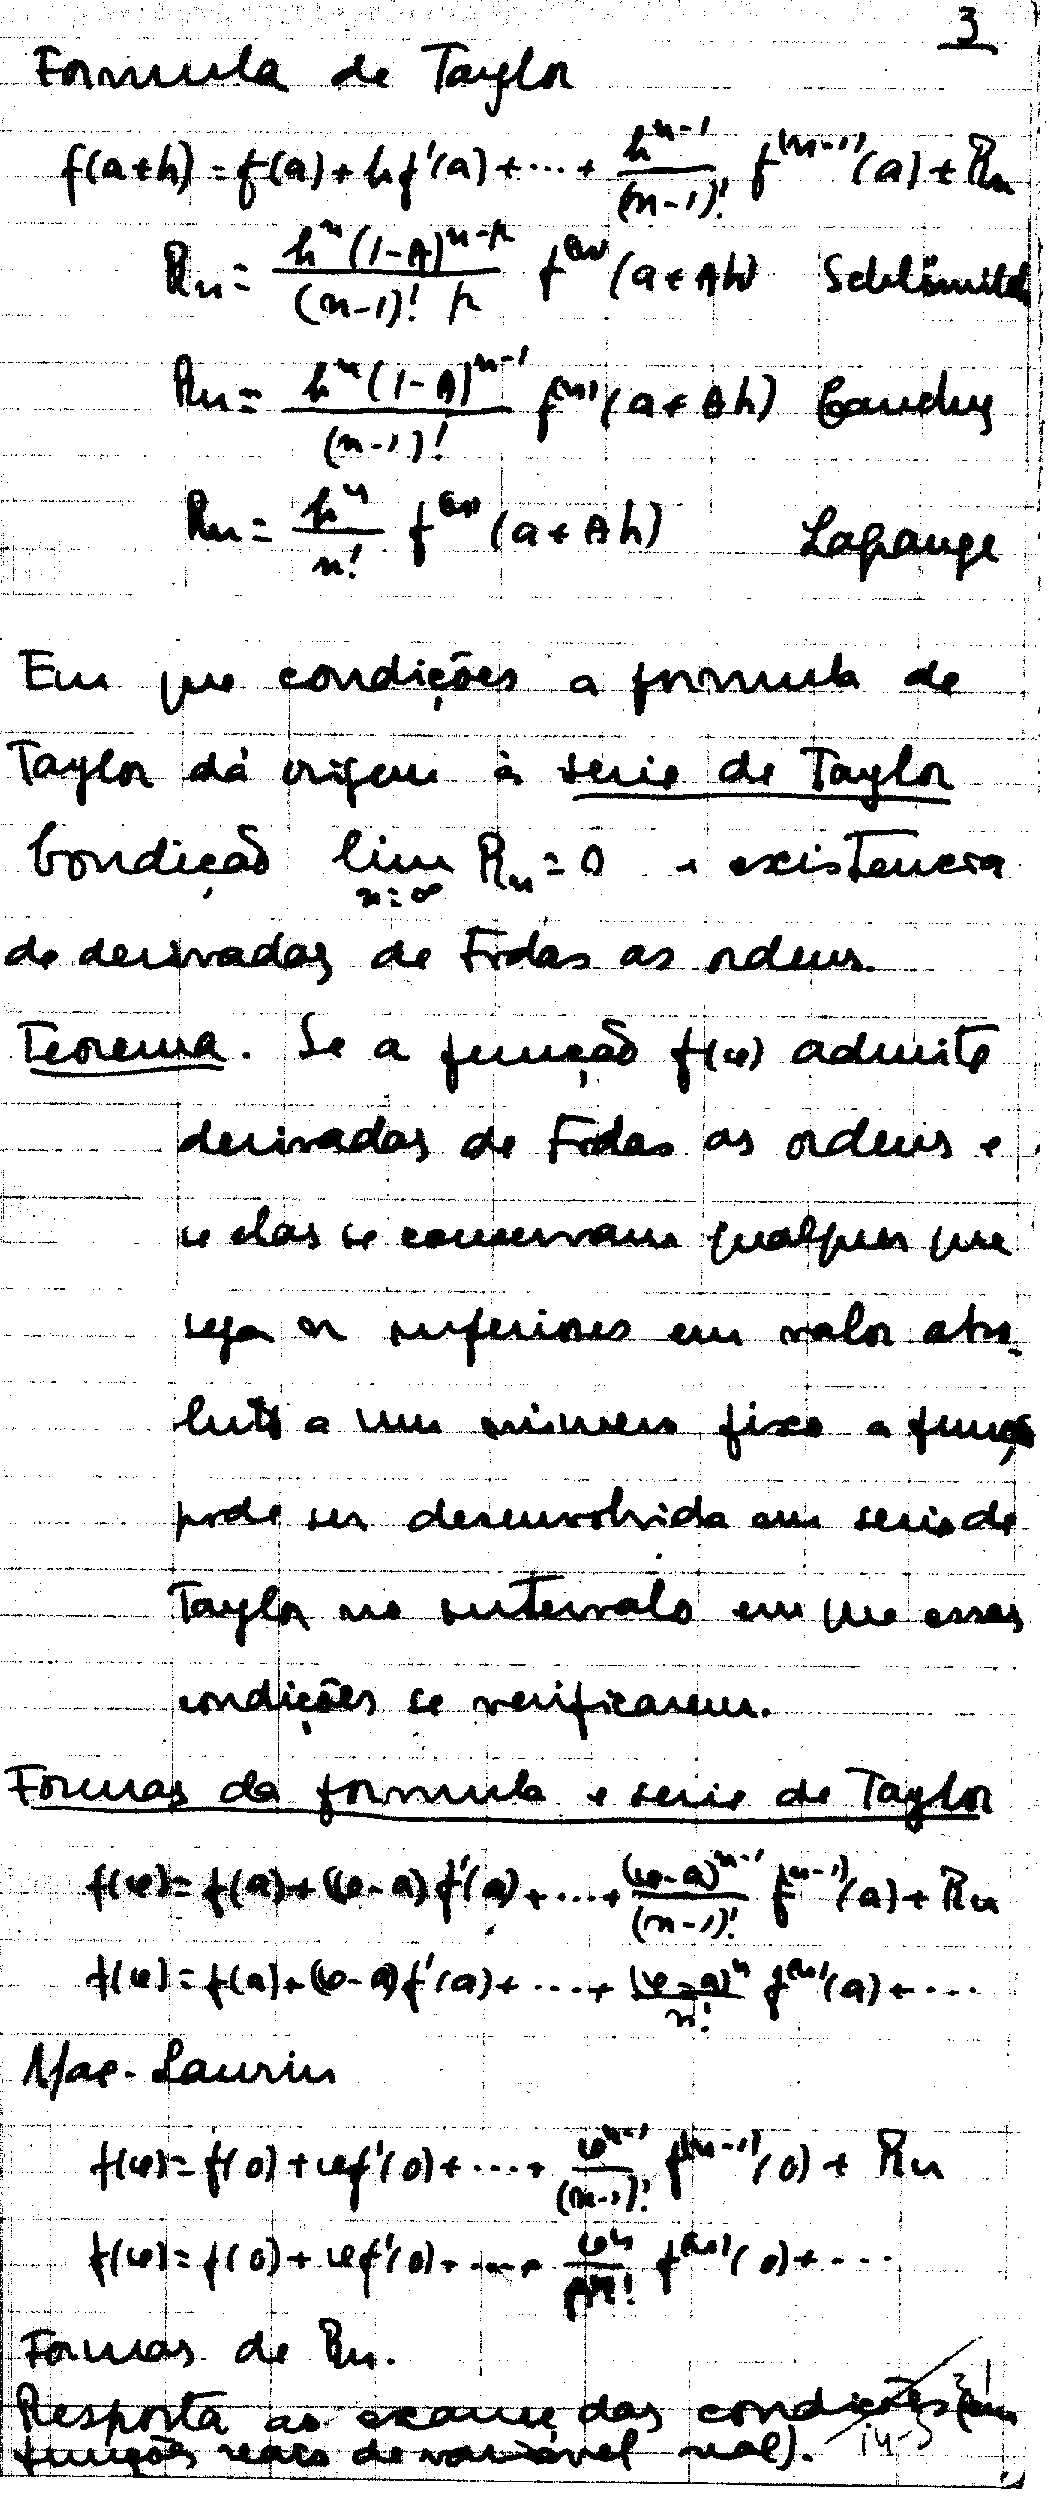 3
Formula de Taylor
f(a+h) = f(a) + h f'(a) + ... + h^{n-1}/(n-1)! f^{(n-1)}(a) + R_n
R_n = h^n (1-θ)^{n-p}/(n-1)! p f^{(n)}(a+θh) Schlömilch
R_n = h^n (1-θ)^{n-1}/(n-1)! f^{(n)}(a+θh) Cauchy
R_n = h^n/n! f^{(n)}(a+θh) Lagrange
Em que condições a formula de
Taylor dá origem à serie de Taylor
Condição lim_{n=∞} R_n = 0 e existencia
de derivadas de todas as ordens.
Teorema. Se a função f(x) admite
derivadas de todas as ordens e
se elas se conservam qualquer que
seja x inferiores em valor abso-
luto a um número fixo a função
pode ser desenvolvida em serie de
Taylor no intervalo em que essas
condições se verificarem.
Formas da formula e serie de Taylor
f(x) = f(a) + (x-a) f'(a) + ... + (x-a)^{n-1}/(n-1)! f^{(n-1)}(a) + R_n
f(x) = f(a) + (x-a) f'(a) + ... + (x-a)^n/n! f^{(n)}(a) + ...
Mac-Laurin
f(x) = f(0) + x f'(0) + ... + x^{n-1}/(n-1)! f^{(n-1)}(0) + R_n
f(x) = f(0) + x f'(0) + ... + x^n/n! f^{(n)}(0) + ...
Formas de R_n.
Resposta ao exame das condições (em
funções reais de variável real).